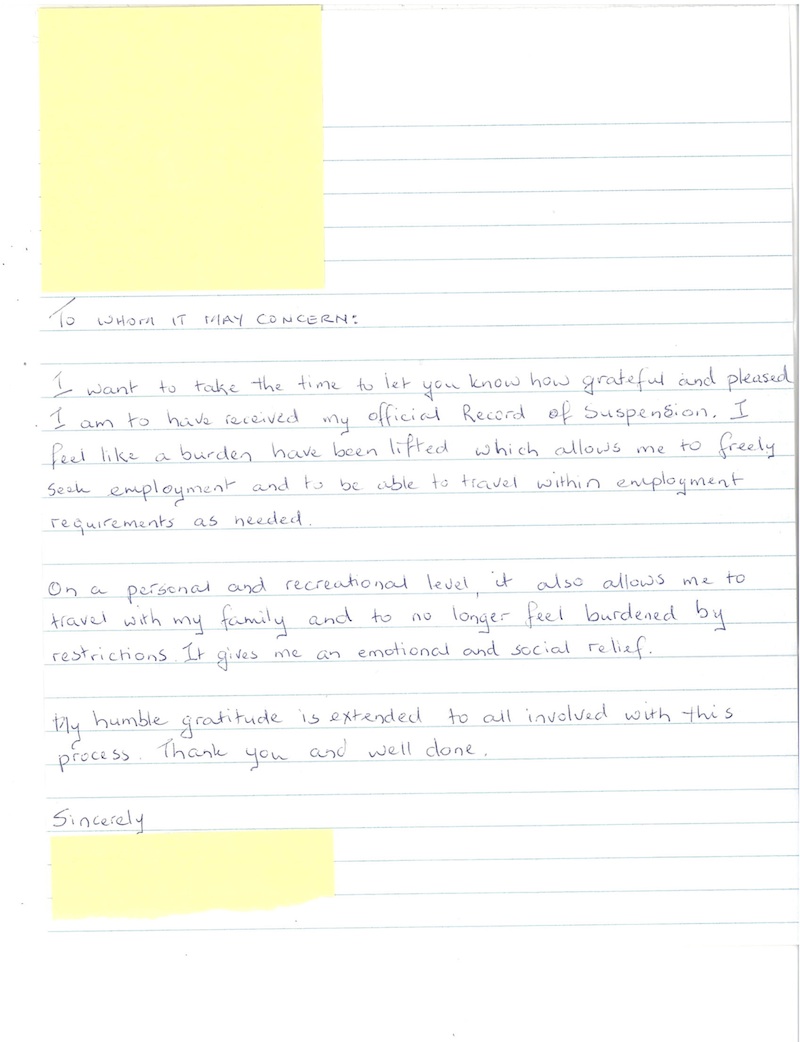 To WHOM IT MAY CONCERN:
I want to take the time to let you know how grateful and pleased
I am to have received my official Record of Suspension. I
feel like a burden have been lifted which allows me to freely
seek employment and to be able to travel within employment
requirements as needed.
On a personal and recreational level, it also allows me to
travel with my family and to no longer feel burdened by
restrictions. It gives me an emotional and social relief.
My humble gratitude is extended to all involved with this
process. Thank you and well done.
Sincerely